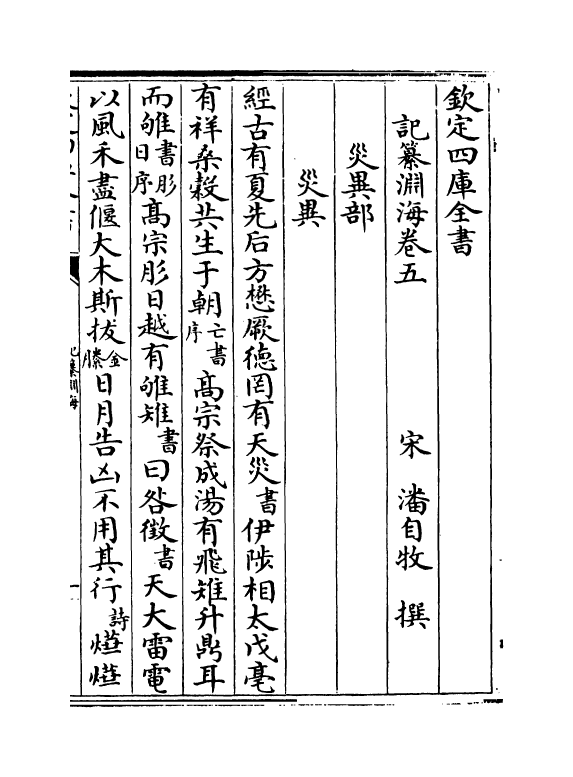 欽定四庫全書
記纂淵海卷五
宋　潘自牧　撰
災異部
災異
經古有夏先后方懋厥德罔有天災書伊陟相太戊亳
有祥桑穀共生于朝亡書序高宗祭成湯有飛雉升鼎耳
而雊書肜日序高宗肜日越有雊雉書曰咎徵書天大雷電
以風禾盡偃大木斯拔金縢日月告凶不用其行詩爗爗
記纂淵海
一